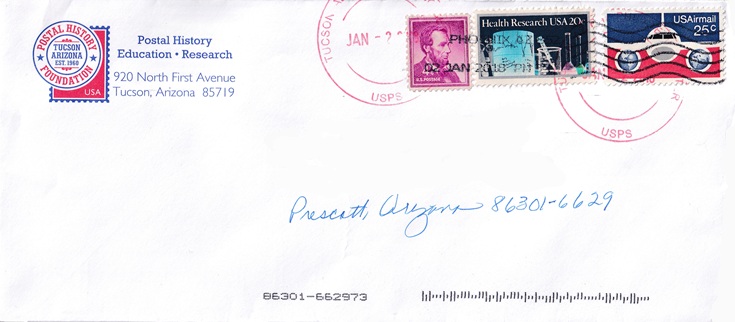 POSTAL HISTORY
TUCSON
ARIZONA
EST. 1960
FOUNDATION
USA
Postal History
Education • Research
920 North First Avenue
Tucson, Arizona 85719
TUCSON
JAN - 2
USPS
U.S. POSTAGE
Health Research USA 20c
PHOENIX AZ
02 JAN 2018 PM
USAirmail
25c
USPS
Prescott, Arizona 86301-6629
86301-662973